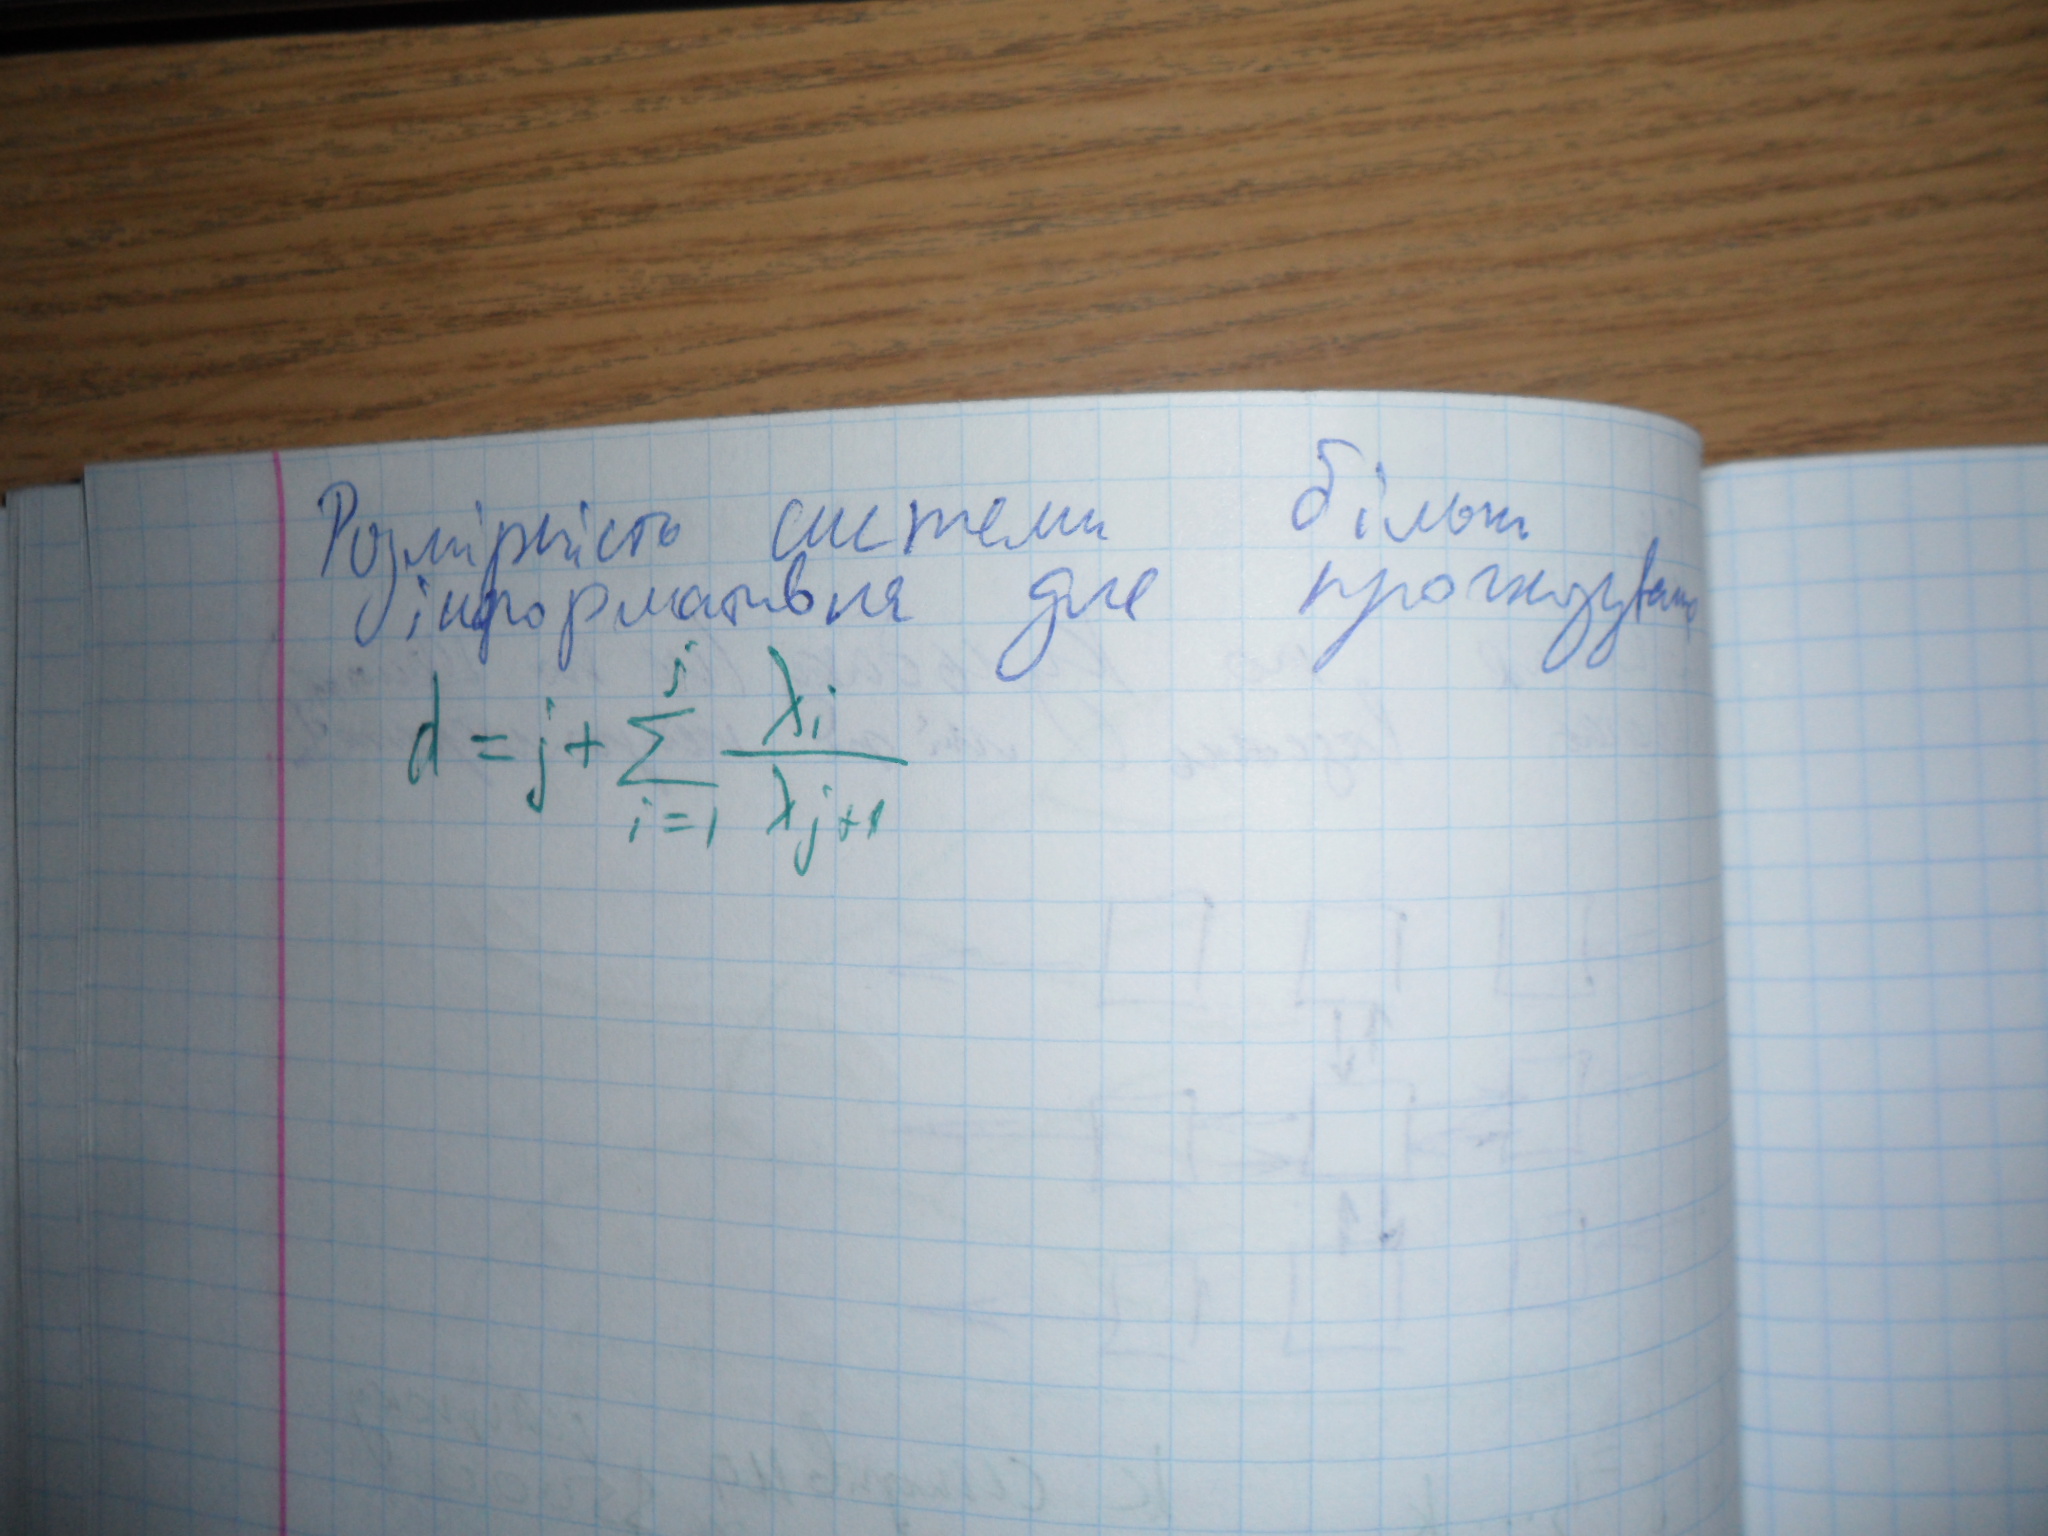 Розмірність системи більш
інформативна для прогнозування
d = j + \sum_{i=1}^{j} \frac{λ_i}{λ_{j+1}}